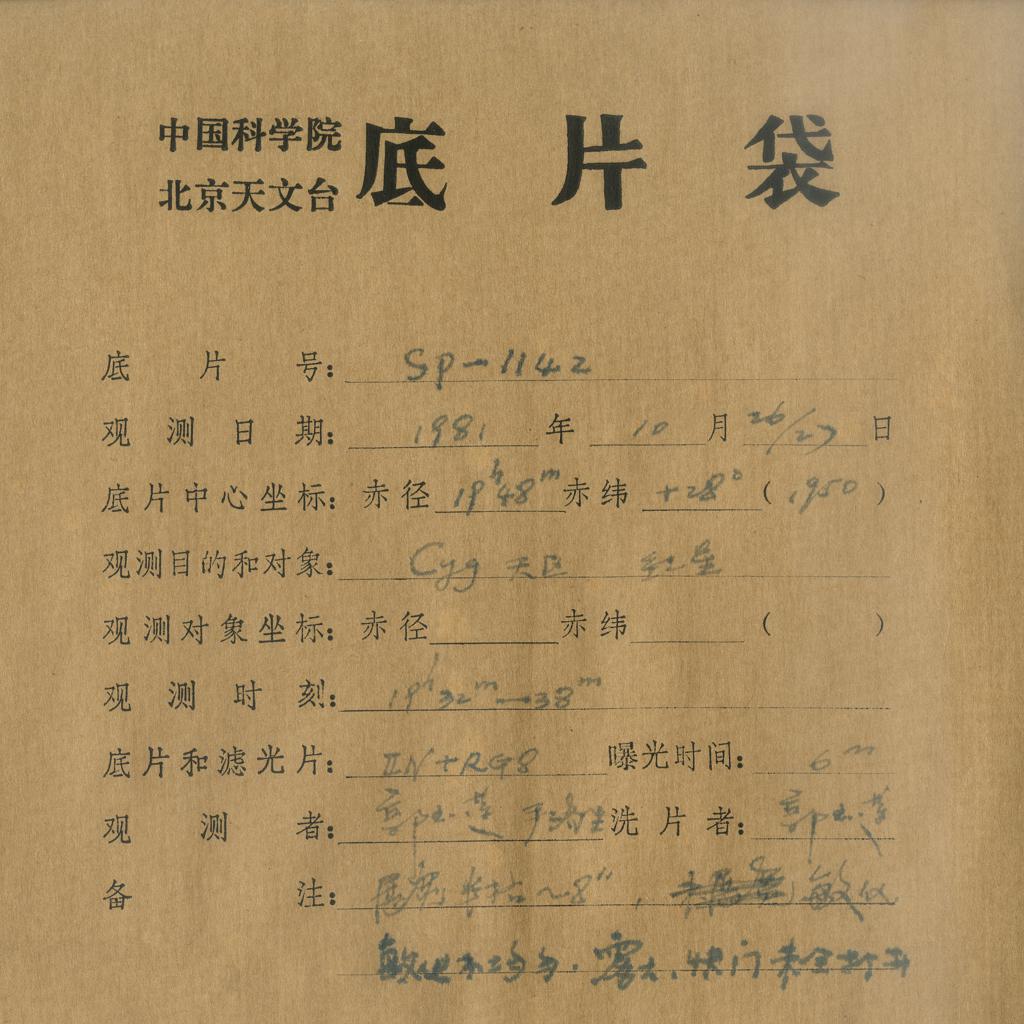 中国科学院
北京天文台 底片袋
底片号: Sp-1142
观测日期: 1981年 10月 26/27日
底片中心坐标: 赤径 19h48m 赤纬 +28° (1950)
观测目的和对象: Cyg 天区 红星
观测对象坐标: 赤径 赤纬 ( )
观测时刻: 19h32m—38m
底片和滤光片: IN+RG8 曝光时间: 6m
观测者: 郭 洗片者: 郭
备注: ~8", 敏化
敏化不均匀. 雾大, 快门未全打开